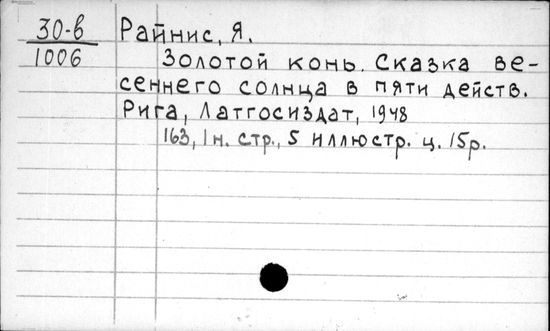 30-в Райнис, Я.
1006 Золотой конь. Сказка ве-
сеннего солнца в пяти действ.
Рига, Латгосиздат, 1948
163, 1 н. стр., 5 иллюстр. ц. 15р.